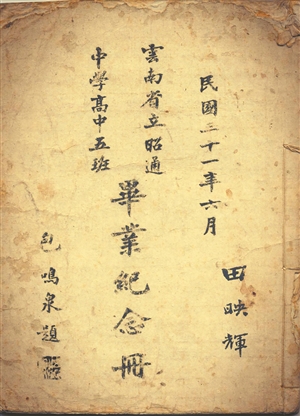 民國三十一年六月
田映輝
雲南省立昭通
中學高中五班
畢業紀念冊
鳴泉題